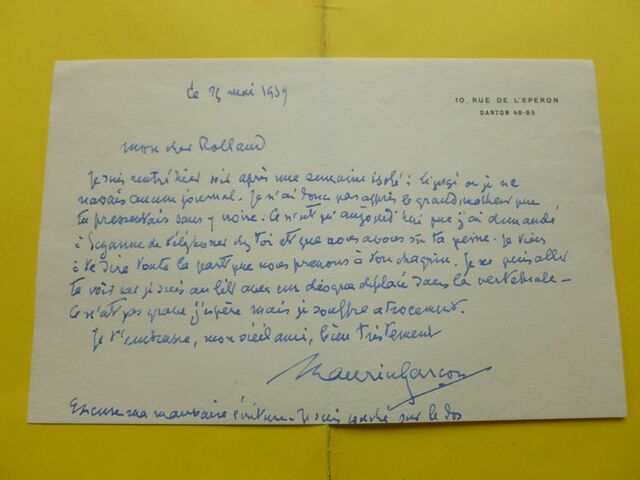 le 25 mai 1959
10, RUE DE L'EPERON
DANTON 46-85
mon cher Rolland
Je suis rentré hier soir après une semaine isolé à Ligugé où je ne
lisais aucun journal. Je n'ai donc pas appris le grand malheur que
tu pressentais sans y croire. Ce n'est qu'aujourd'hui que j'ai demandé
à Suzanne de téléphoner chez toi et que nous avons su ta peine. Je viens
à te dire toute la part que nous prenons à ton chagrin. Je ne puis aller
te voir car je suis au lit avec un disque déplacé dans la vertébrale -
Ce n'est pas grave j'espère mais je souffre atrocement.
Je t'embrasse, mon vieil ami, bien tristement
Maurice Garçon
Excuse ma mauvaise écriture. Je suis couché sur le dos